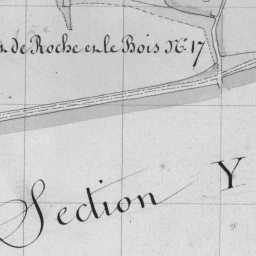 de Roche et le Bois N.º 17
Section Y